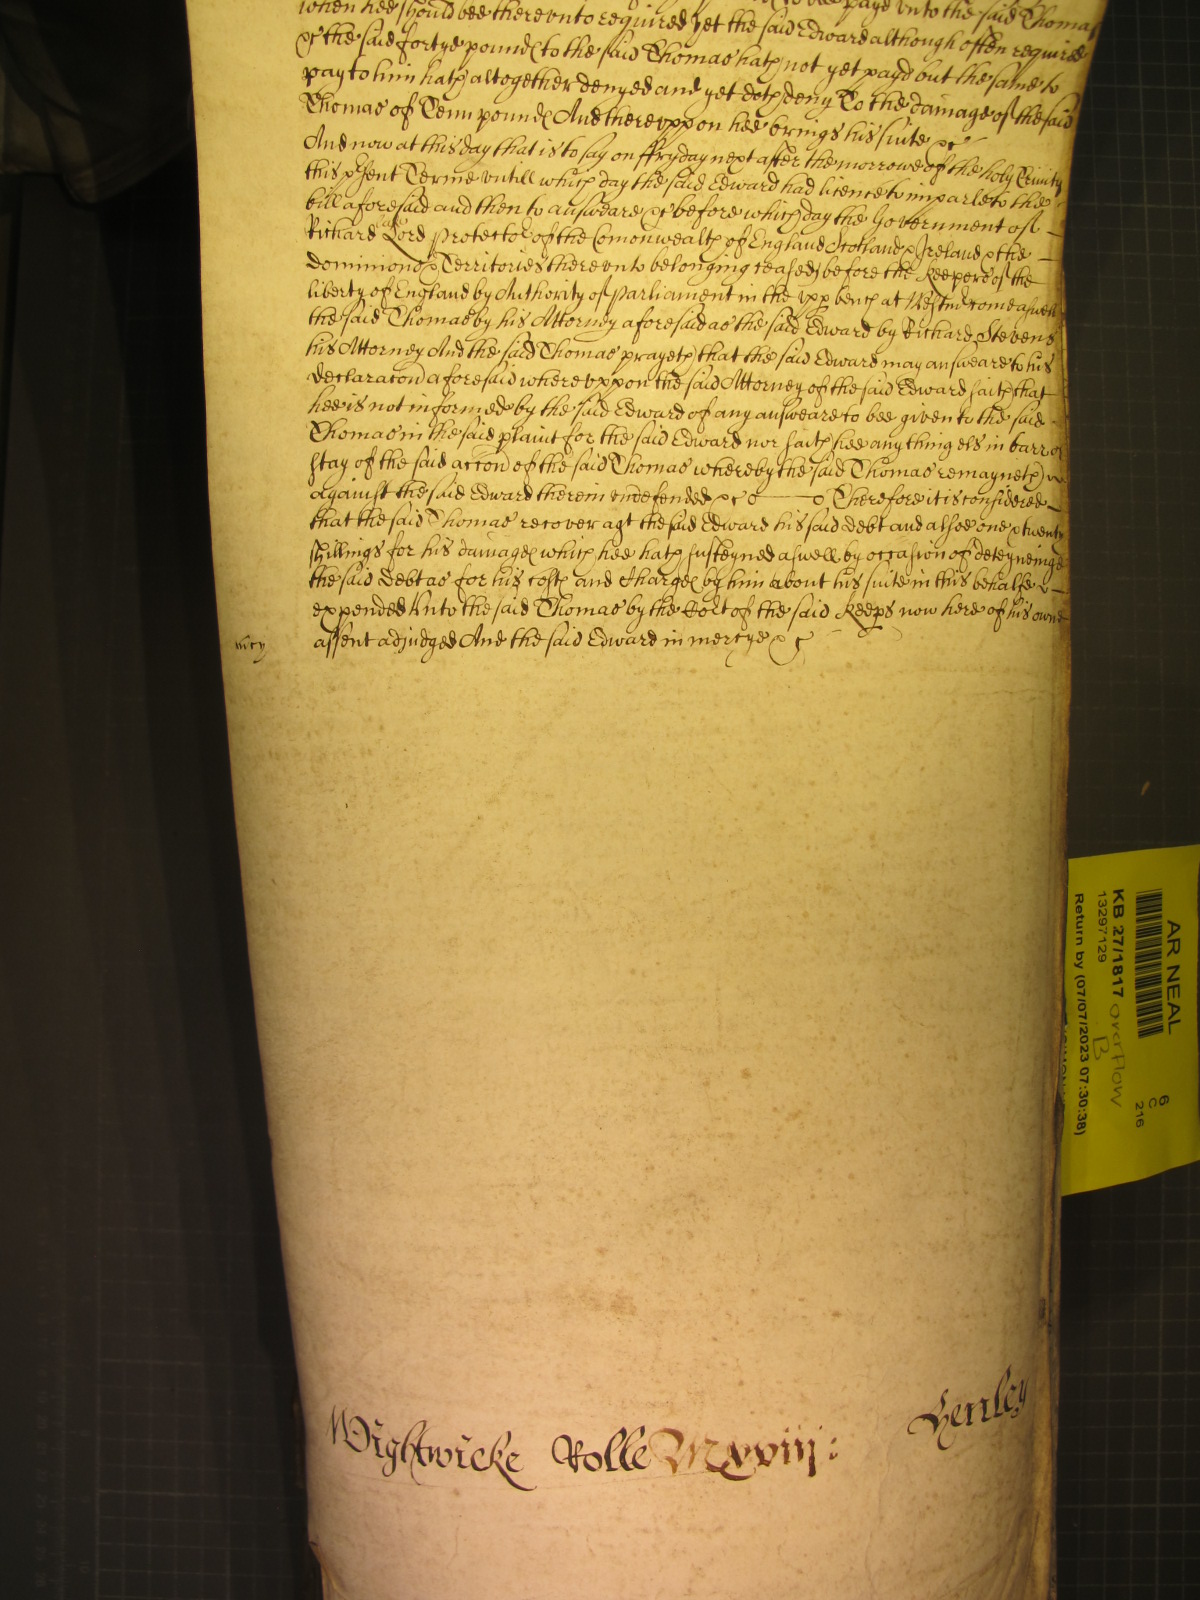 when hee should bee therevnto required yet the said Edward although often required
&c the said fortye pound(es) to the said Thomas hath not yet payd but the same to
pay to him hath altogether denyed and yet doth deny To the damage of the said
Thomas of Tenn pound(es) And therevppon hee brings his suite &c
And now at this day that is to say on ffryday next after the morrowe of the holy Trinity
this p'sent Terme vntill which day the said Edward had licence to imparle to the
bill aforesaid and then to answeare &c before which day the Government of
Richard late Lord Protector of the Comonwealth of England Scotland & Ireland & the
dominions & Territories therevnto belonging ceased before the keepers of the
liberty of England by Authority of Parliament in the vpp bench at Westmr come aswell
the said Thomas by his Attorney aforesaid as the said Edward by Richard Stevens
his Attorney And the said Thomas prayeth that the said Edward may answeare to his
declaracon aforesaid wherevppon the said Attorney of the said Edward saith that
hee is not informed by the said Edward of any answeare to bee given to the said
Thomas in the said plaint for the said Edward nor saith hee any thing els in barr or
stay of the said accon of the said Thomas whereby the said Thomas remayneth
against the said Edward therein vndefended &c Therefore it is considered
that the said Thomas recover agt the said Edward his said debt and alsoe one & twenty
shillings for his damages which hee hath susteyned aswell by occasion of deteyneinge
the said debt as for his costs and charges by him about his suite in this behalfe
expended Unto the said Thomas by the Cort of the said Keeps now here of his owne
assent adjudged And the said Edward in mercye &c
mcy
Wightwicke Rolle Mxviij:
Henley
AR NEAL
KB 27/1817 overflow
B
13297129
Return by (07/07/2023 07:30:38)
6
C
216